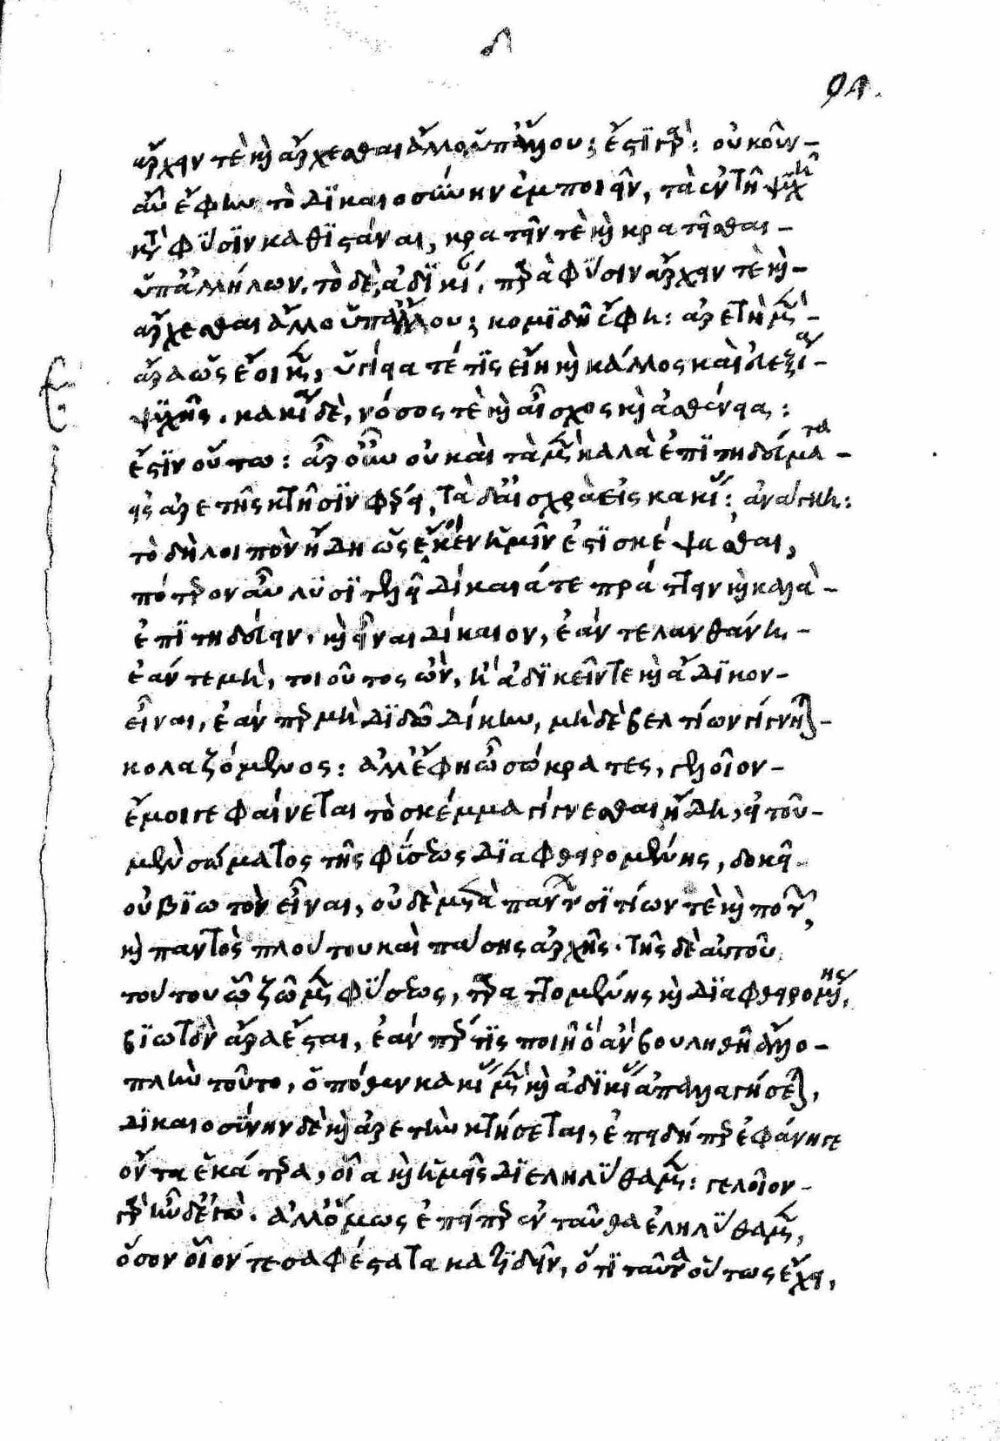 ϟα.
ἄρχειν τὲ καὶ ἄρχεσθαι ἄλλο ὑπ' ἄλλου; ἔστι γάρ: οὐκοῦν
αὖ ἔφην τὸ δικαιοσύνην ἐμποιεῖν, τὰ ἐν τῇ ψυχῇ
κατὰ φύσιν καθιστάναι, κρατεῖν τὲ καὶ κρατεῖσθαι
ὑπ' ἀλλήλων. τὸ δὲ, ἀδικίαν, παρὰ φύσιν ἄρχειν τὲ καὶ
ἄρχεσθαι ἄλλο ὑπ' ἄλλου; κομιδῆ ἔφη: ἀρετὴ μὲν
ἄρα ὡς ἔοικεν, ὑγίεια τέ τις εἴη καὶ κάλλος καὶ εὐεξία
ψυχῆς. κακία δὲ, νόσος τὲ καὶ αἶσχος καὶ ἀσθένεια:
ἔστιν οὕτω: ἆρ' οὖν οὐ καὶ τὰ μὲν καλὰ ἐπιτηδεύματα
εἰς ἀρετῆς κτῆσιν φέρει, τὰ δ' αἰσχρὰ εἰς κακίαν: ἀνάγκη:
τὸ δὴ λοιπὸν ἤδη ὡς ἔοικεν ἡμῖν ἐστὶ σκέψασθαι,
πότερον αὖ λυσιτελεῖ δίκαιά τε πράττειν καὶ καλὰ
ἐπιτηδεύειν, καὶ εἶναι δίκαιον, ἐάν τε λανθάνη,
ἐάν τε μὴ, τοιοῦτος ὤν, ἢ ἀδικεῖν τε καὶ ἄδικον
εἶναι, ἐάνπερ μὴ διδῶ δίκην, μὴ δὲ βελτίων γίγνηται
κολαζόμενος: ἀλλ' ἔφη ὦ σώκρατες, γελοῖον
ἔμοιγε φαίνεται τὸ σκέμμα γίγνεσθαι ἤδη, εἰ τοῦ
μὲν σώματος τῆς φύσεως διαφθειρομένης, δοκεῖ
οὐ βιωτὸν εἶναι, οὐδὲ μετὰ πάντων σιτίων τὲ καὶ ποτῶν,
καὶ παντὸς πλούτου καὶ πάσης ἀρχῆς. τῆς δὲ αὐτοῦ
τούτου ᾧ ζῶμεν φύσεως, ταραττομένης καὶ διαφθειρομένης,
βιωτὸν ἄρα ἔσται, ἐάνπερ τις ποιῇ ὃ ἂν βουληθῆ ἄλλο
πλὴν τοῦτο, ὁπόθεν κακίας μὲν καὶ ἀδικίας ἀπαλλαγήσεται,
δικαιοσύνην δὲ καὶ ἀρετὴν κτήσεται, ἐπειδήπερ ἐφάνη γε
ὄντα ἑκάτερα, οἷα καὶ ἡμεῖς διεληλύθαμεν: γελοῖον
γὰρ ἦν δ' ἐγώ. ἀλλ' ὅμως ἐπείπερ ἐνταῦθα ἐληλύθαμεν,
ὅσον οἷόν τε σαφέστατα κατιδεῖν, ὅτι ταῦτα οὕτως ἔχει,